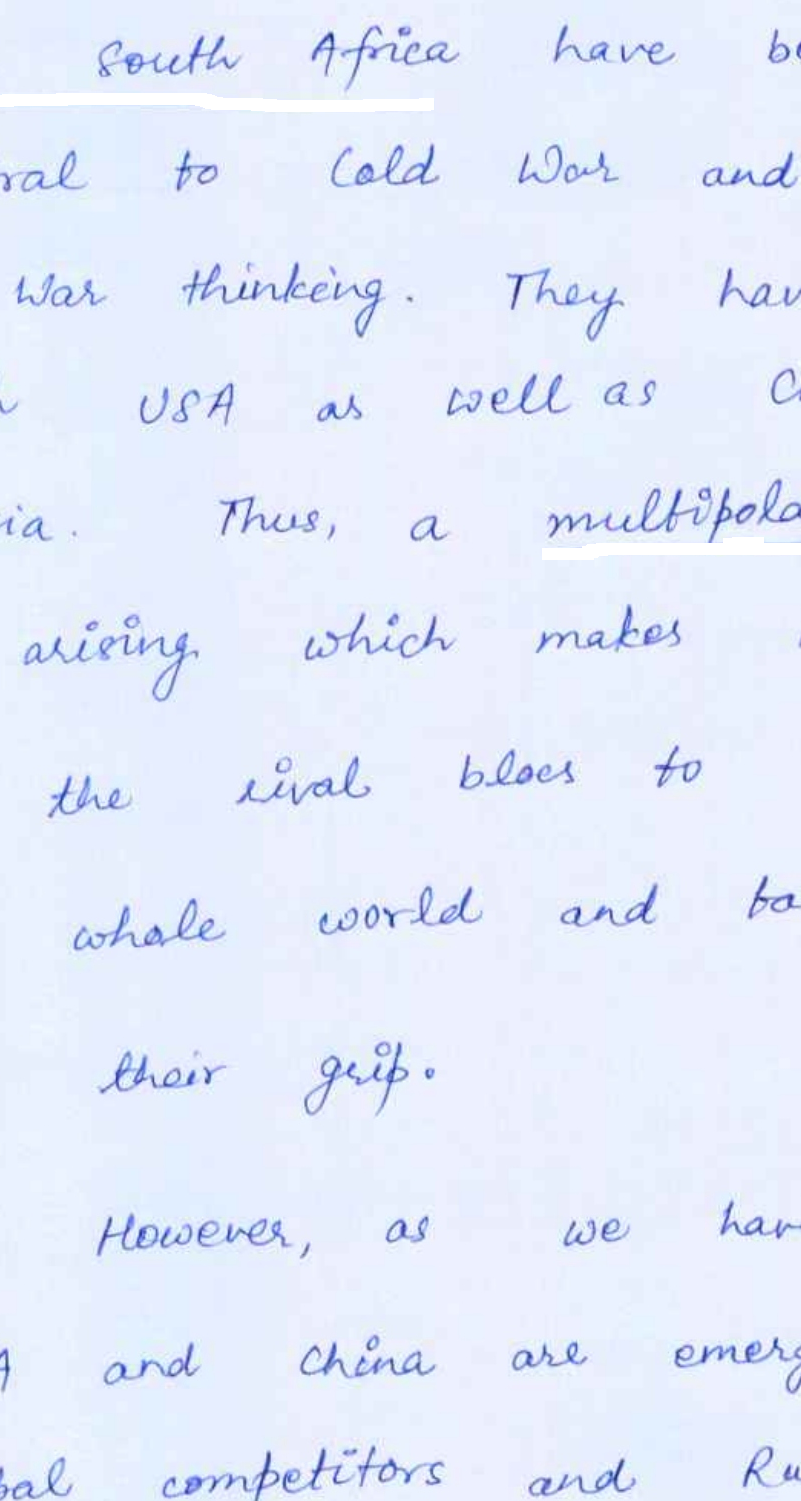 South Africa have be
ral to Cold War and
War thinking. They hav
USA as well as C
ia. Thus, a multipola
arising which makes
the rival blocs to
whole world and
their grip.
However, as we hav
A and China are emerg
bal competitors and Ru